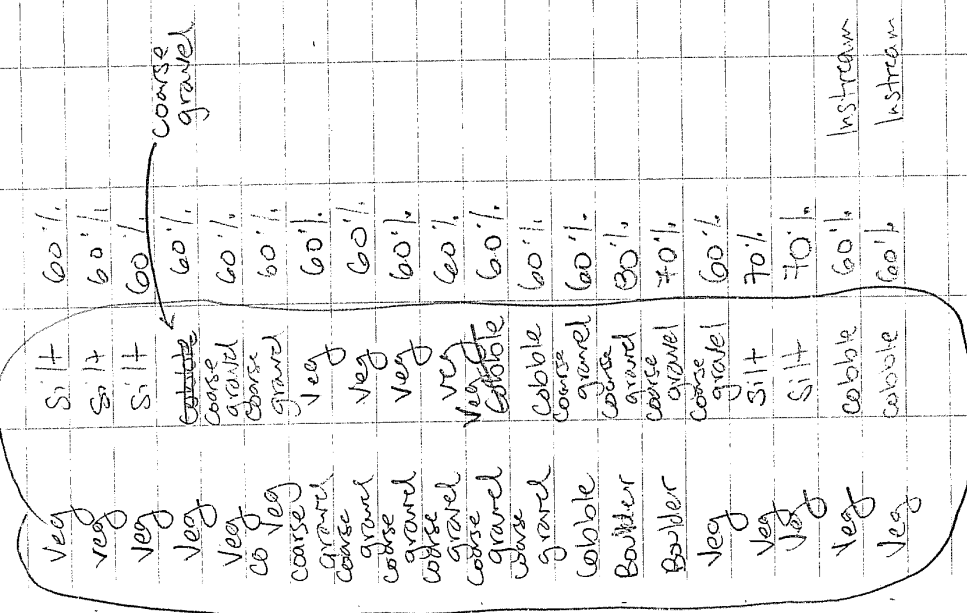 Veg Silt 60%
veg Silt 60%
Veg Silt 60%
Veg Cobble 60% coarse gravel
Veg coarse gravel 60%
co Veg coarse gravel 60%
coarse gravel Veg 60%
coarse gravel Veg 60%
coarse gravel Veg 60%
coarse gravel veg 60%
coarse gravel Veg Cobble 60%
coarse gravel Cobble 60%
Cobble coarse gravel 60%
Boulder coarse gravel 80%
Boulder coarse gravel 70%
Veg coarse gravel 60%
Veg Silt 70%
Veg Silt 70%
Veg cobble 60% Instream
Veg cobble 60% Instream